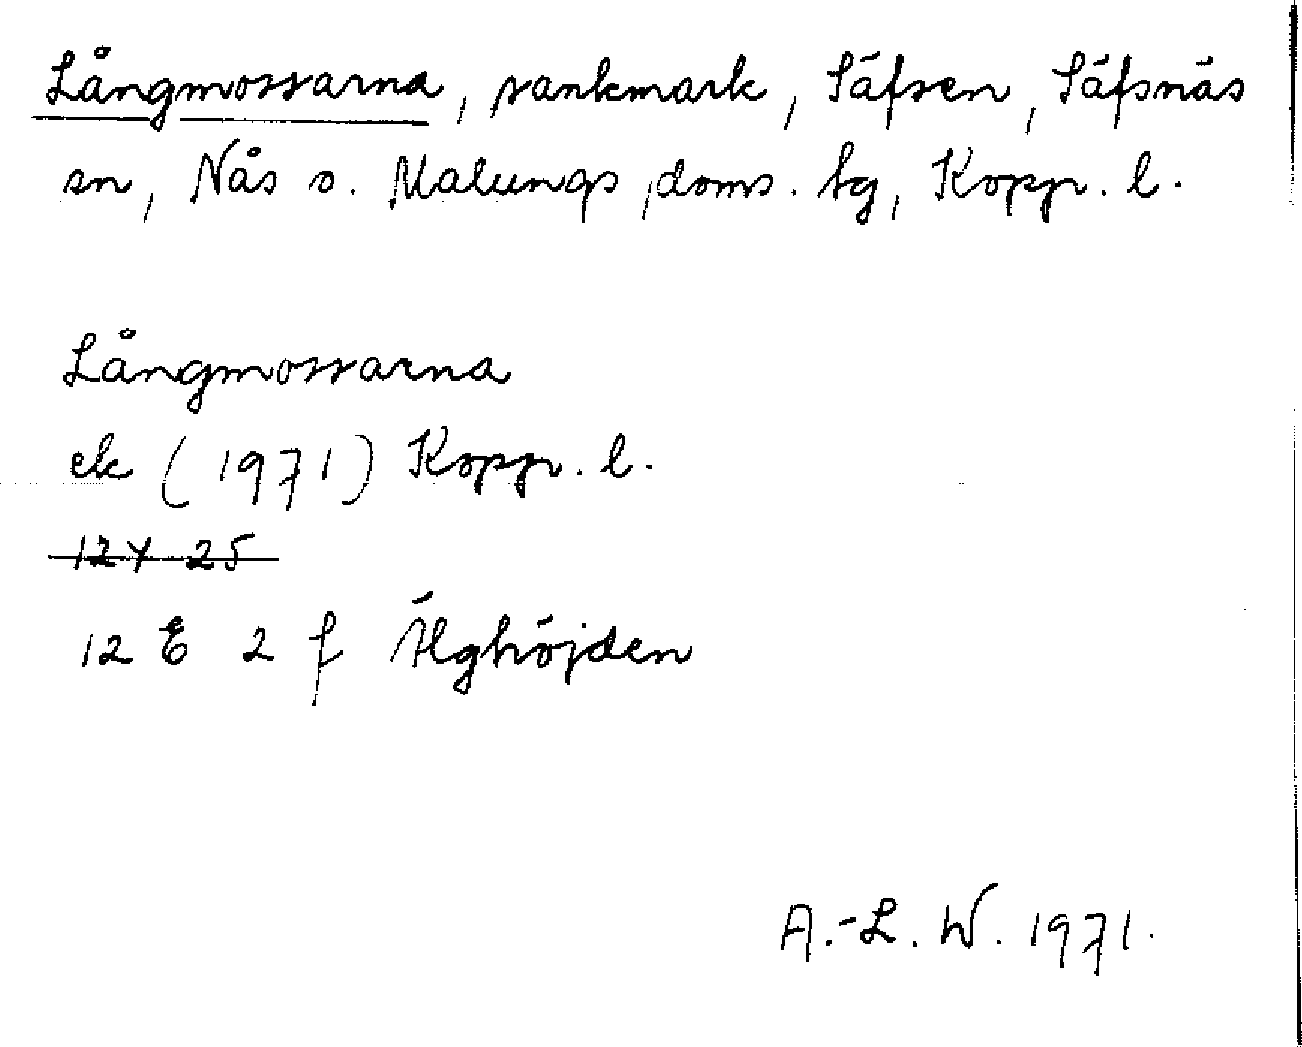 Långmossarna, sankmark, Säfsen, Säfsnäs
sn, Nås o. Malungs doms. tg, Kopp. l.
Långmossarna
ek (1971) Kopp. l.
12 Y 25
12 E 2 f Älghöjden
A.-L. W. 1971.